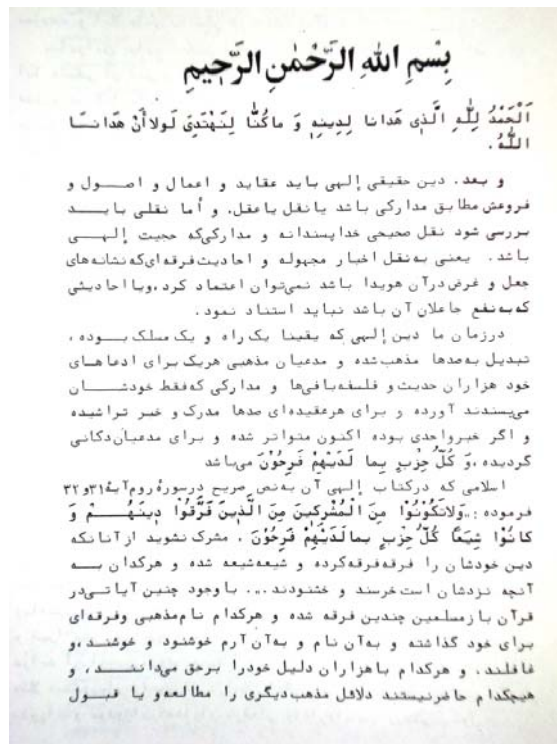 بِسْمِ اللهِ الرَّحْمٰنِ الرَّحِيمِ
اَلْحَمْدُ لِلّٰهِ الَّذِى هَدانا لِدِينِهِ وَ ماكُنّٰا لِنَهْتَدِىَ لَولاأَنْ هَدانَا
اللّٰهُ .
و بعد . دین حقیقی إلهی باید عقاید و اعمال و اصول و
فروعش مطابق مدارکی باشد یانقل یاعقل. و أما نقلی باید
بررسی شود نقل صحیحی خداپسندانه و مدارکی‌که حجیت إلهی
باشد . یعنی به‌نقل اخبار مجهوله و احادیث فرقه‌ای‌که‌نشانه‌های
جعل و غرض‌درآن هویدا باشد نمی‌توان اعتماد کرد ،ویااحادیثی
که‌به‌نفع جاعلان آن باشد نباید استناد نمود .
درزمان ما دین إلهی که یقینا یک راه و یک‌مسلک بوده ،
تبدیل به‌صدها مذهب‌شده و مدعیان مذهبی هریک برای ادعاهای
خود هزاران حدیث و فلسفه‌بافی‌ها و مدارکی که‌فقط خودشان
می‌پسندند آورده و برای هرعقیده‌ای صدها مدرک و خبر تراشیده
و اگر خبرواحدی بوده اکنون متواتر شده و برای مدعیان‌دکانی
گردیده ،وَ کُلُّ حِزْبٍ بِما لَدَیْهِمْ فَرِحُوْنَ می‌باشد
اسلامی که درکتاب إلهی آن به‌نص صریح درسورهٔ روم‌آیهٔ ۳۱و۳۲
فرموده :,,وَلاتَکُونُوْا مِنَ الْمُشْرِکینَ مِنَ الَّذینَ فَرَّقُوْا دِینَهُمْ وَ
کانُوْا شِیَعًا کُلُّ حِزْبٍ بِمالَدَیْهِمْ فَرِحُوْنَ . مشرک نشوید ازآنانکه
دین خودشان را فرقه‌فرقه‌کرده و شیعه‌شیعه شده و هرکدان به
آنچه نزدشان است‌خرسند و خشنودند.,, باوجود چنین آیاتی‌در
قرآن بازمسلمین چندین فرقه شده و هرکدام نام‌مذهبی وفرقه‌ای
برای خود گذاشته و به‌آن نام و به‌آن آرم خوشنود و خوشند ،و
غافلند. و هرکدام باهزاران دلیل خودرا برحق می‌دانند ، و
هیچکدام حاضرنیستند دلائل مذهب‌دیگری را مطالعه‌و یا قبول